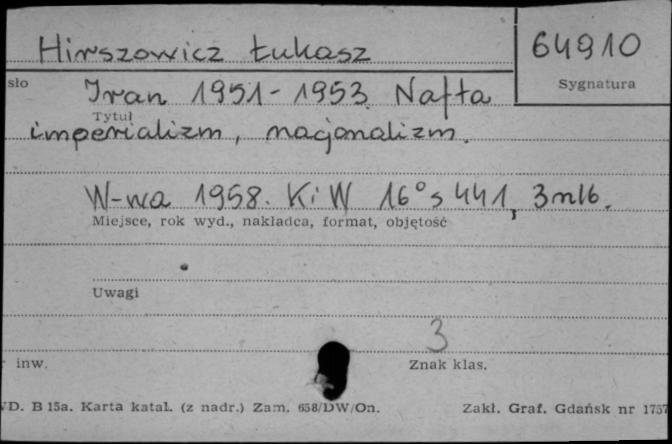 Hirszowicz Łukasz
64910
Sygnatura
sło
Iran 1951-1953 Nafta
Tytuł
imperializm, nacjonalizm.
W-wa 1958. KiW 16° s 441, 3 nlb.
Miejsce, rok wyd., nakładca, format, objętość
Uwagi
3
inw.
Znak klas.
D. B 15a. Karta katal. (z nadr.) Zam. 658/DW/On.
Zakł. Graf. Gdańsk nr 1757